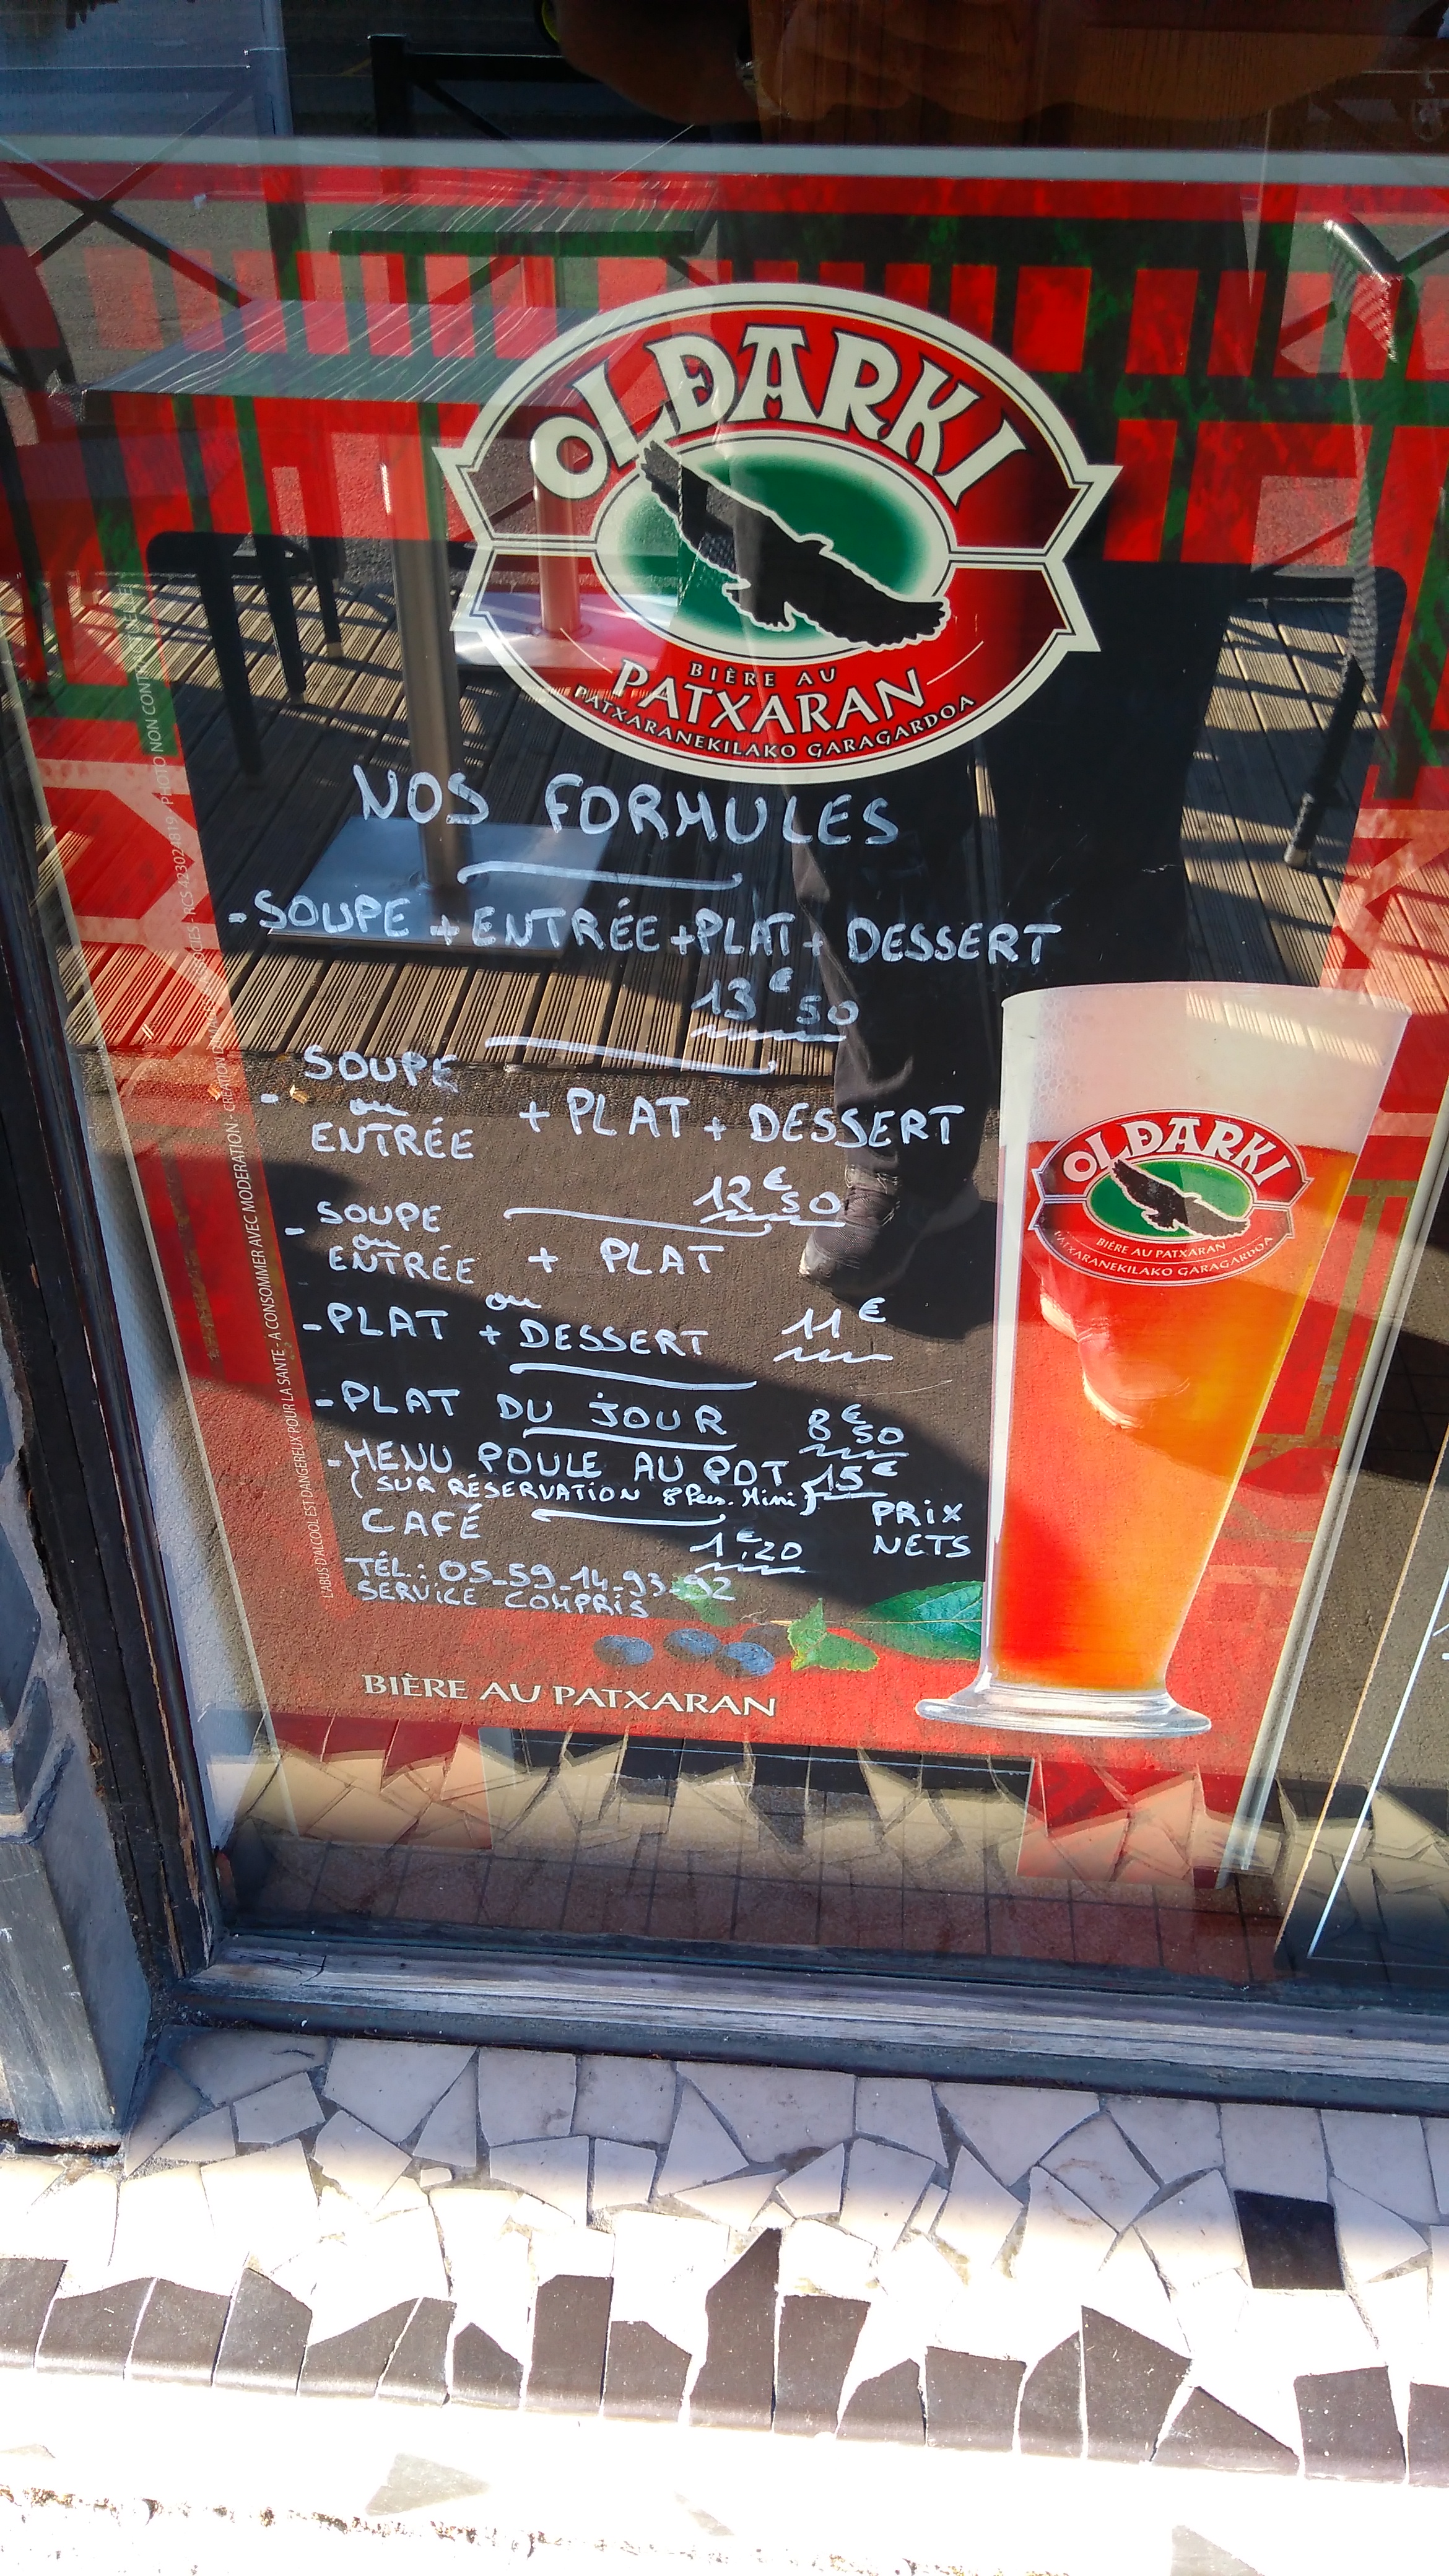 OLDARKI
BIÈRE AU
PATXARAN
PATXARANEKILAKO GARAGARDOA
NOS FORMULES
- SOUPE + ENTRÉE + PLAT + DESSERT
13€50
SOUPE
- ou + PLAT + DESSERT
ENTRÉE
12€50
- SOUPE
ou
ENTRÉE + PLAT
ou
- PLAT + DESSERT 11€
- PLAT DU JOUR 8€50
- MENU POULE AU POT 15€
( SUR RÉSERVATION 8 Pers. Mini )
CAFÉ 1€,20
PRIX
NETS
TÉL.: 05_59_14_93_92
SERVICE COMPRIS
BIÈRE AU PATXARAN
OLDARKI
BIÈRE AU PATXARAN
PATXARANEKILAKO GARAGARDOA
L'ABUS D'ALCOOL EST DANGEREUX POUR LA SANTÉ - À CONSOMMER AVEC MODERATION - CRÉATION - RCS 423024819 - PHOTO NON